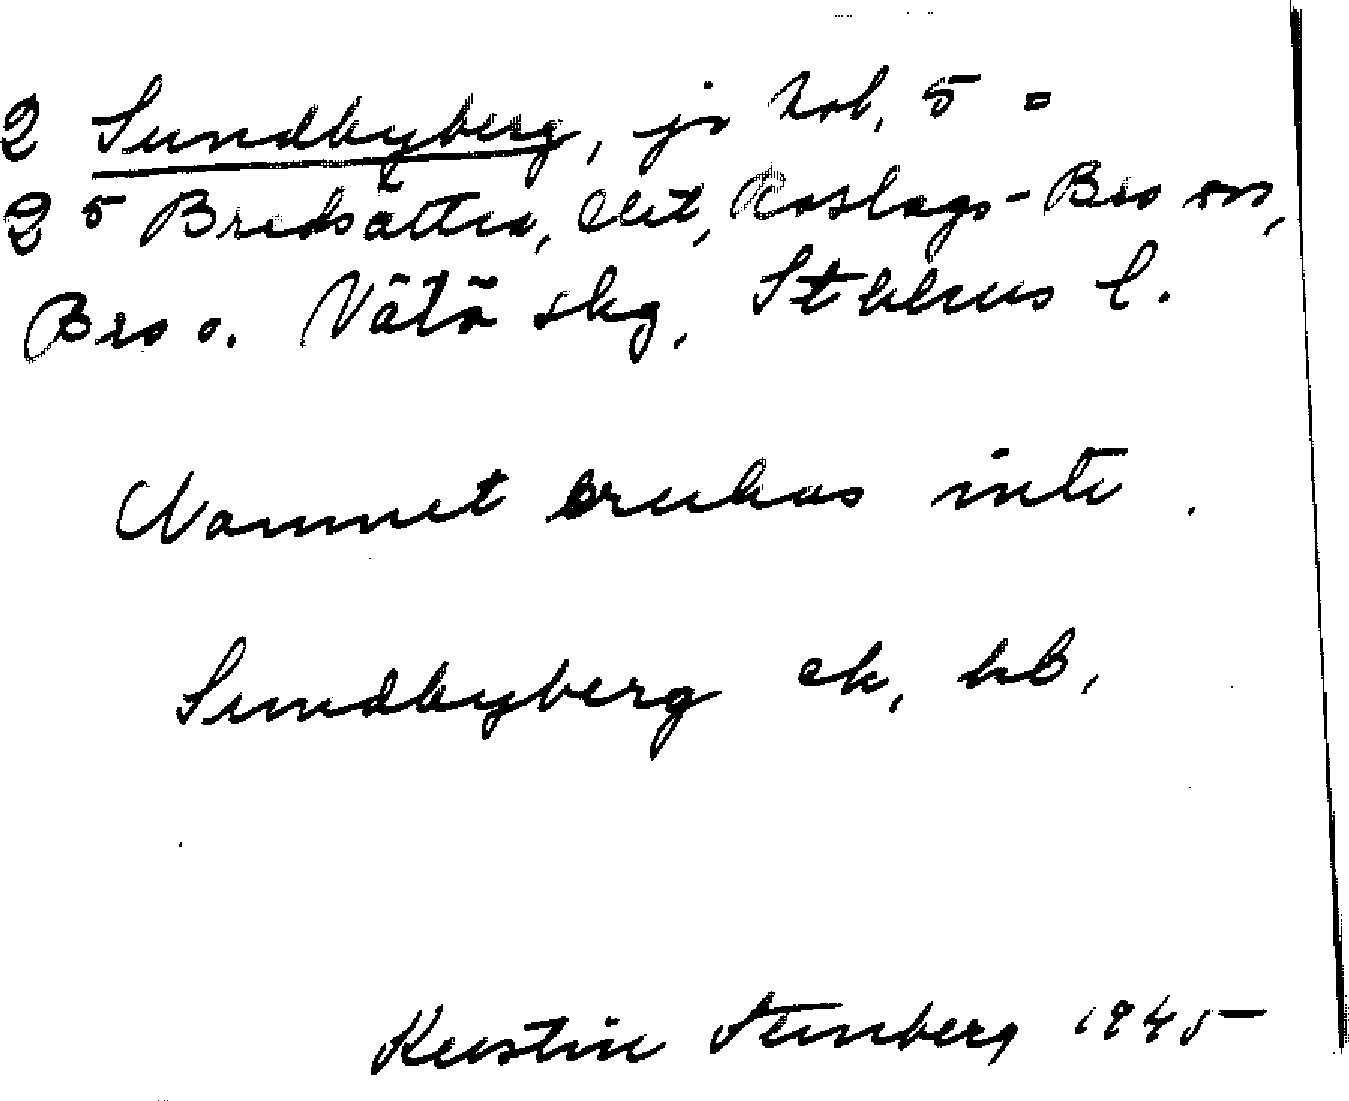 2 Sundbyberg, jr hob, 5 =
2 5 Bredsättra, Roslags-Bro sn,
Bro o. Vätö skg. Sthlms l.
Namnet brukas inte.
Sundbyberg ek, kb.
Kerstin Stenberg 1945